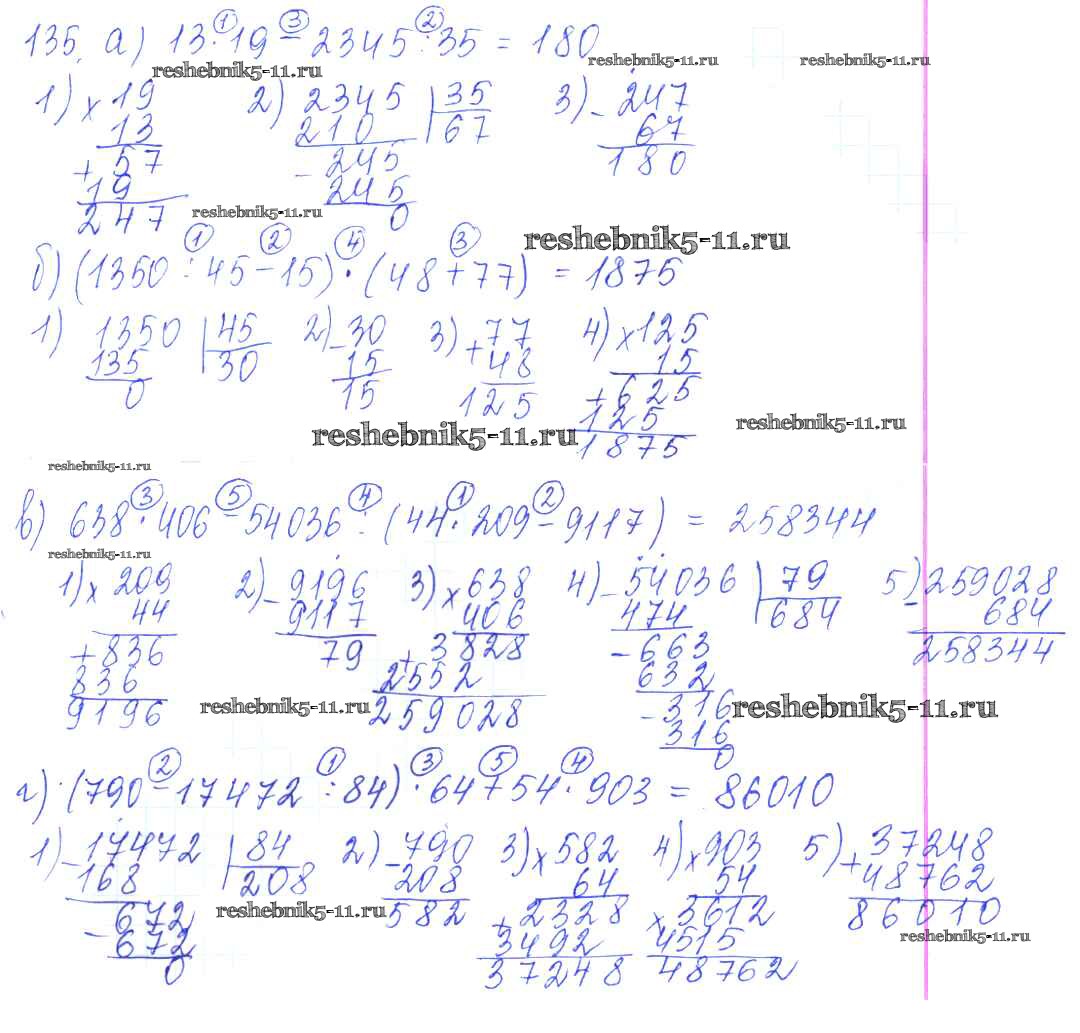 135. а) 13 · 19 - 2345 : 35 = 180
① ③ ②
reshebnik5-11.ru reshebnik5-11.ru reshebnik5-11.ru
1) × 19 2) 2345 | 35 3) - 247
13 210 67 67
+ 57 - 245 180
19 245
247 reshebnik5-11.ru 0
① ② ④ ③ reshebnik5-11.ru
б) (1350 : 45 - 15) · (48 + 77) = 1875
1) 1350 | 45 2) - 30 3) + 77 4) × 125
135 30 15 48 15
0 15 125 + 625
125
reshebnik5-11.ru 1875 reshebnik5-11.ru
reshebnik5-11.ru
③ ⑤ ④ ① ②
в) 638 · 406 - 54036 : (44 · 209 - 9117) = 258344
reshebnik5-11.ru
1) × 209 2) - 9196 3) × 638 4) - 54036 | 79 5) - 259028
44 9117 406 474 684 684
+ 836 79 + 3828 - 663 258344
836 2552 632
9196 reshebnik5-11.ru 259028 - 316 reshebnik5-11.ru
316
0
② ① ③ ⑤ ④
г) (790 - 17472 : 84) · 64 + 54 · 903 = 86010
1) - 17472 | 84 2) - 790 3) × 582 4) × 903 5) + 37248
168 208 208 64 54 48762
- 672 reshebnik5-11.ru 582 + 2328 × 3612 86010
672 3492 4515 reshebnik5-11.ru
0 37248 48762